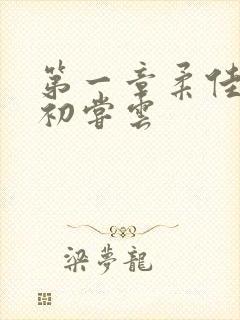 第一章柔佳
初嘗雲
梁夢龍